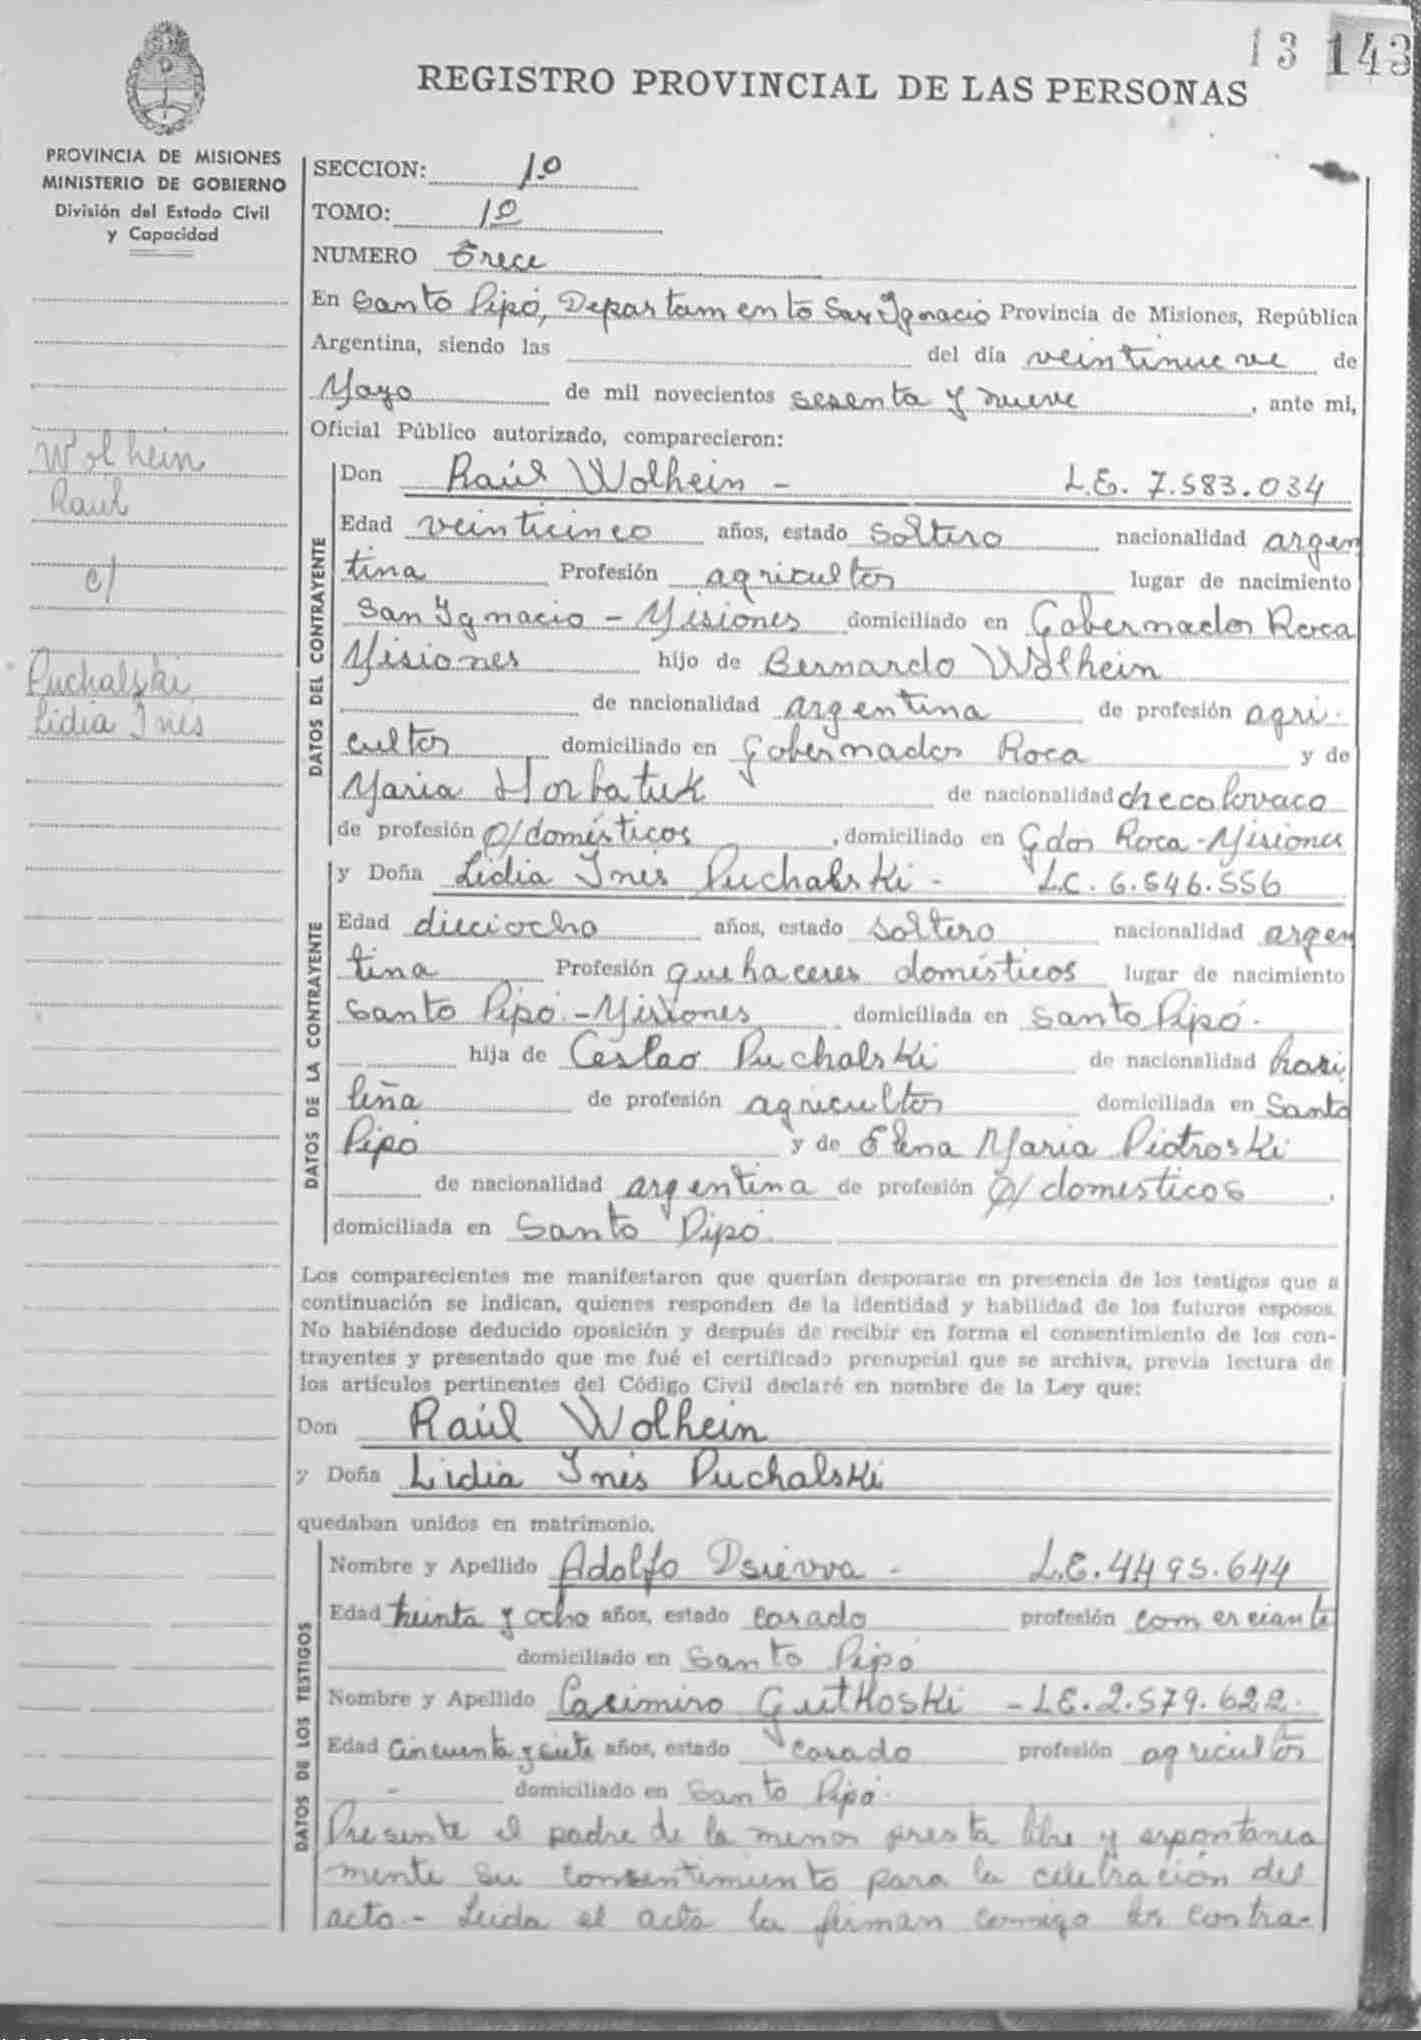 13 143
REGISTRO PROVINCIAL DE LAS PERSONAS
PROVINCIA DE MISIONES
MINISTERIO DE GOBIERNO
División del Estado Civil
y Capacidad
Wolhein
Raúl
c/
Puchalski
Lidia Inés
SECCION: 1º
TOMO: 1º
NUMERO Trece
En Santo Pipó, Departamento San Ignacio Provincia de Misiones, República
Argentina, siendo las del día veintinueve de
Mayo de mil novecientos sesenta y nueve, ante mi,
Oficial Público autorizado, comparecieron:
DATOS DEL CONTRAYENTE
Don Raúl Wolhein - L.E. 7.583.034
Edad veinticinco años, estado soltero nacionalidad argen
tina Profesión agricultor lugar de nacimiento
San Ignacio - Misiones domiciliado en Gobernador Roca
Misiones hijo de Bernardo Wolhein
de nacionalidad argentina de profesión agri-
cultor domiciliado en Gobernador Roca y de
Maria Horbatuk de nacionalidad checolovaco
de profesión Q/domésticos, domiciliado en Gdor Roca - Misiones
DATOS DE LA CONTRAYENTE
y Doña Lidia Inés Puchalski - L.C. 6.546.556
Edad dieciocho años, estado soltero nacionalidad argen
tina Profesión quehaceres domésticos lugar de nacimiento
Santo Pipó - Misiones domiciliada en Santo Pipó.
hija de Ceslao Puchalski de nacionalidad brasi
leña de profesión agricultor domiciliada en Santo
Pipó y de Elena Maria Piotroski
de nacionalidad argentina de profesión Q/ domesticos,
domiciliada en Santo Pipó.
Los comparecientes me manifestaron que querían desposarse en presencia de los testigos que a
continuación se indican, quienes responden de la identidad y habilidad de los futuros esposos.
No habiéndose deducido oposición y después de recibir en forma el consentimiento de los con-
trayentes y presentado que me fué el certificado prenupcial que se archiva, previa lectura de
los artículos pertinentes del Código Civil declaré en nombre de la Ley que:
Don Raúl Wolhein
y Doña Lidia Inés Puchalski
quedaban unidos en matrimonio.
DATOS DE LOS TESTIGOS
Nombre y Apellido Adolfo - L.E. 4495.644
Edad treinta y ocho años, estado casado profesión comerciante
domiciliado en Santo Pipó
Nombre y Apellido Casimiro Gutkoski - L.E. 2.579.622.
Edad Cincuenta y siete años, estado casado profesión agricultor
- domiciliado en Santo Pipó.
Presente el padre de la menor presta libre y espontanea
mente su consentimiento para la celebración del
acto. - Leida el acta la firman conmigo los contra-